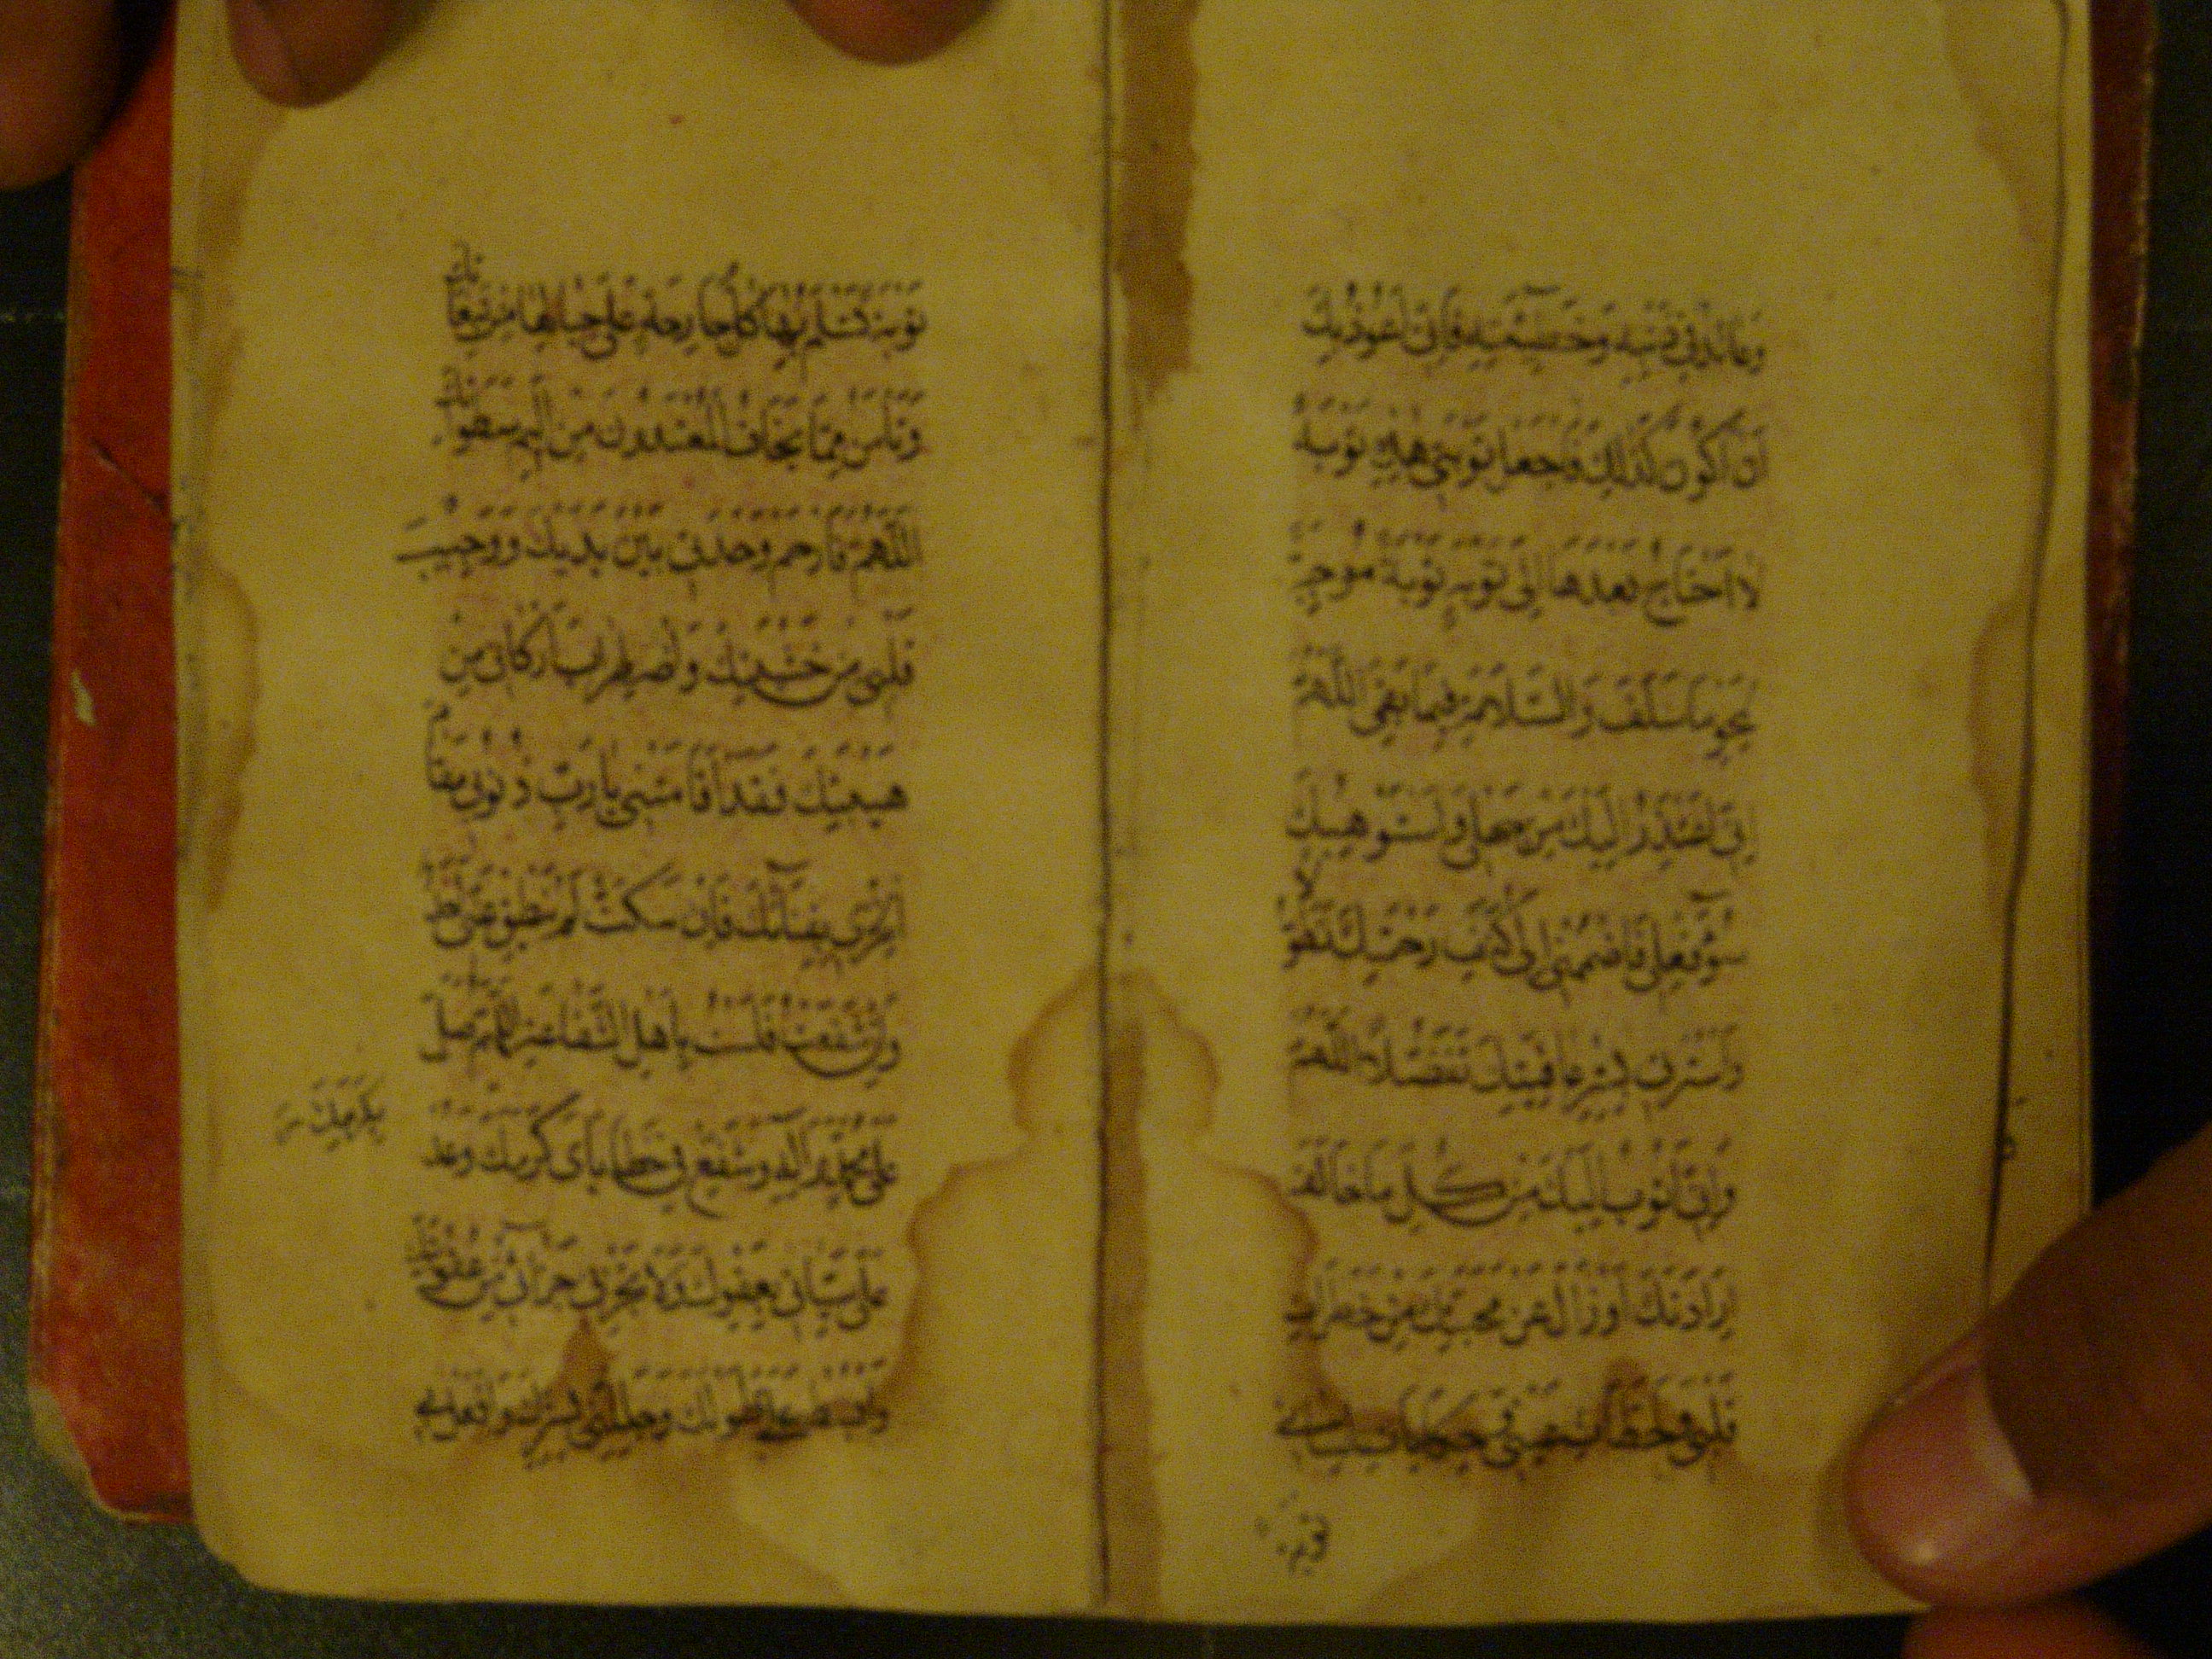 وَعَائِدٌ فِي ذَنْبِهِ وَخَطِيئَتِهِ فَإِنِّي أَعُوذُ بِكَ
أَنْ أَكُونَ كَذَلِكَ فَاجْعَلْ تَوْبَتِي هَذِهِ تَوْبَةً
لَا أَحْتَاجُ بَعْدَهَا إِلَى تَوْبَةٍ تَوْبَةً مُوجِبَةً
لِمَحْوِ مَا سَلَفَ وَالسَّلَامَةِ فِيمَا بَقِيَ اللَّهُمَّ
إِنِّي أَعْتَذِرُ إِلَيْكَ مِنْ جَهْلِي وَأَسْتَوْهِبُكَ
سُوءَ فِعْلِي فَاضْمُمْنِي إِلَى كَنَفِ رَحْمَتِكَ تَطَوُّلًا
وَاسْتُرْنِي بِسِتْرِ عَافِيَتِكَ تَفَضُّلًا اللَّهُمَّ
وَإِنِّي أَتُوبُ إِلَيْكَ مِنْ كُلِّ مَا خَالَفَ
إِرَادَتَكَ أَوْ زَالَ عَنْ مَحَبَّتِكَ مِنْ خَطَرَاتِ
قَلْبِي وَلَحَظَاتِ عَيْنِي وَحِكَايَاتِ لِسَانِي
تَوْبَةً
تَوْبَةً تَسْلَمُ بِهَا كُلُّ جَارِحَةٍ عَلَى حِيَالِهَا مِنْ تَبِعَاتِكَ
وَتَأْمَنُ مِمَّا يَخَافُ الْمُعْتَدُونَ مِنْ أَلِيمِ سَطَوَاتِكَ
اللَّهُمَّ فَارْحَمْ وَحْدَتِي بَيْنَ يَدَيْكَ وَوَجِيبَ
قَلْبِي مِنْ خَشْيَتِكَ وَاضْطِرَابَ أَرْكَانِي مِنْ
هَيْبَتِكَ فَقَدْ أَقَامَتْنِي يَا رَبِّ ذُنُوبِي مَقَامَ
الْخِزْيِ بِفِنَائِكَ فَإِنْ سَكَتُّ لَمْ يَنْطِقْ عَنِّي أَحَدٌ
وَإِنْ شَفَعْتُ فَلَسْتُ بِأَهْلِ الشَّفَاعَةِ اللَّهُمَّ صَلِّ
عَلَى مُحَمَّدٍ وَآلِهِ وَشَفِّعْ فِي خَطَايَايَ كَرَمَكَ وَعُدْ
عَلَى سَيِّئَاتِي بِعَفْوِكَ وَلَا تَجْزِنِي جَزَائِي مِنْ عُقُوبَتِكَ
وَابْسُطْ عَلَيَّ طَوْلَكَ وَجَلِّلْنِي بِسِتْرِكَ وَافْعَلْ بِي